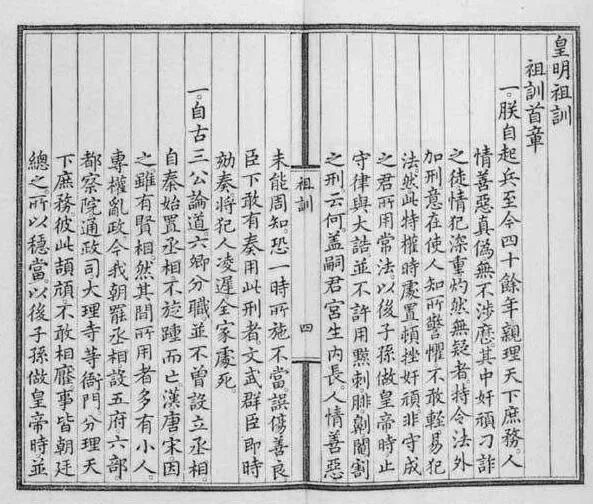 皇明祖訓
祖訓首章
一。朕自起兵至今四十餘年親理天下庶務。人
情善惡真偽無不涉歷其中奸頑刁詐
之徒情犯深重灼然無疑者特令法外
加刑意在使人知所警懼不敢輕易犯
法。然此特權時處置頓挫奸頑非守成
之君所用常法以後子孫做皇帝時止
守律與大誥並不許用黥刺腓劓閹割
之刑云何。蓋嗣君宮生内長。人情善惡
祖訓
四
未能周知。恐一時所施不當誤傷善良
臣下敢有奏用此刑者文武群臣即時
劾奏將犯人凌遲全家處死。
一。自古三公論道六卿分職並不曾設立丞相。
自秦始置丞相不旋踵而亡漢唐宋因
之雖有賢相。然其間所用者多有小人。
專權亂政今我朝罷丞相設五府六部。
都察院通政司大理寺等衙門。分理天
下庶務彼此頡頏。不敢相壓。事皆朝廷
總之。所以穩當以後子孫做皇帝時並